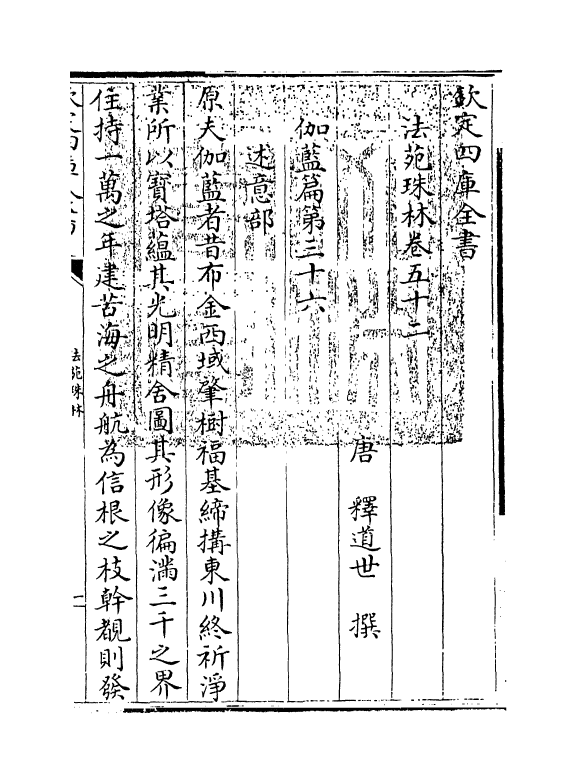 欽定四庫全書
法苑珠林卷五十二
唐 釋道世 撰
伽藍篇第三十六
述意部
原夫伽藍者昔布金西域肇樹福基締搆東川終祈淨
業所以寳塔蘊其光明精舍圖其形像徧滿三千之界
住持一萬之年建苦海之舟航為信根之枝幹覩則發
法苑珠林